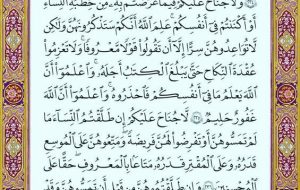 وَلَا جُنَاحَ عَلَيْكُمْ فِيمَا عَرَّضْتُم بِهِ مِنْ خِطْبَةِ ٱلنِّسَآءِ
أَوْ أَكْنَنتُمْ فِىٓ أَنفُسِكُمْ عَلِمَ ٱللَّهُ أَنَّكُمْ سَتَذْكُرُونَهُنَّ وَلَٰكِن
لَّا تُوَاعِدُوهُنَّ سِرًّا إِلَّآ أَن تَقُولُوا۟ قَوْلًا مَّعْرُوفًا وَلَا تَعْزِمُوا۟
عُقْدَةَ ٱلنِّكَاحِ حَتَّىٰ يَبْلُغَ ٱلْكِتَٰبُ أَجَلَهُۥ وَٱعْلَمُوٓا۟ أَنَّ ٱللَّهَ
يَعْلَمُ مَا فِىٓ أَنفُسِكُمْ فَٱحْذَرُوهُ وَٱعْلَمُوٓا۟ أَنَّ ٱللَّهَ
غَفُورٌ حَلِيمٌ ٢٣٥ لَّا جُنَاحَ عَلَيْكُمْ إِن طَلَّقْتُمُ ٱلنِّسَآءَ مَا
لَمْ تَمَسُّوهُنَّ أَوْ تَفْرِضُوا۟ لَهُنَّ فَرِيضَةً وَمَتِّعُوهُنَّ عَلَى ٱلْمُوسِعِ
قَدَرُهُۥ وَعَلَى ٱلْمُقْتِرِ قَدَرُهُۥ مَتَٰعًۢا بِٱلْمَعْرُوفِ حَقًّا عَلَى
ٱلْمُحْسِنِينَ ٢٣٦ وَإِن طَلَّقْتُمُوهُنَّ مِن قَبْلِ أَن تَمَسُّوهُنَّ وَقَدْ